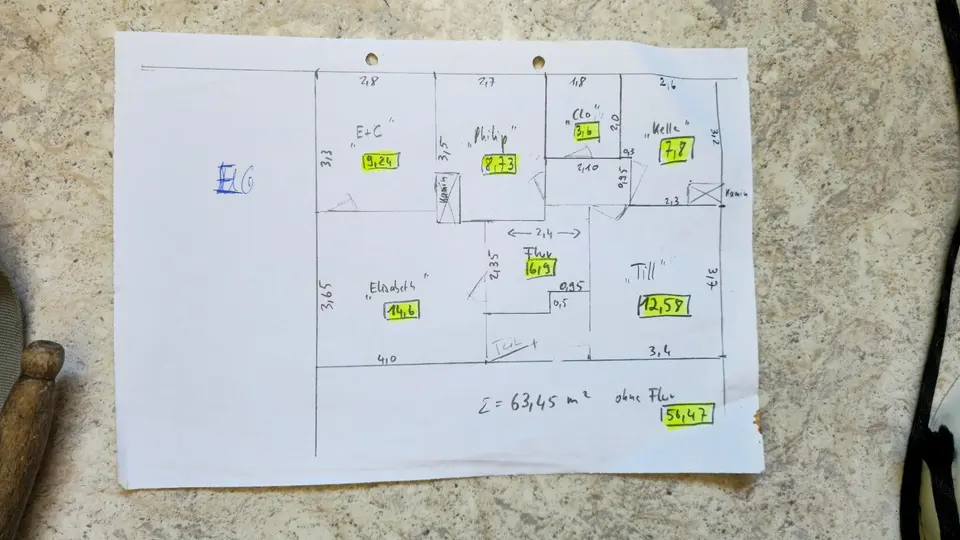 2,8
2,7
1,8
2,6
"E+C"
9,24
3,3
3,5
"Philip"
8,73
"Clo"
3,6
2,0
"Kella"
7,8
3,2
0,3
2,10
0,95
Kamin
2,3
Kamin
EG
2,4
Flur
6,9
2,35
0,95
0,5
"Elisabeth"
14,6
3,65
"Till"
12,58
3,7
4,0
3,4
Σ = 63,45 m² ohne Flur
56,47